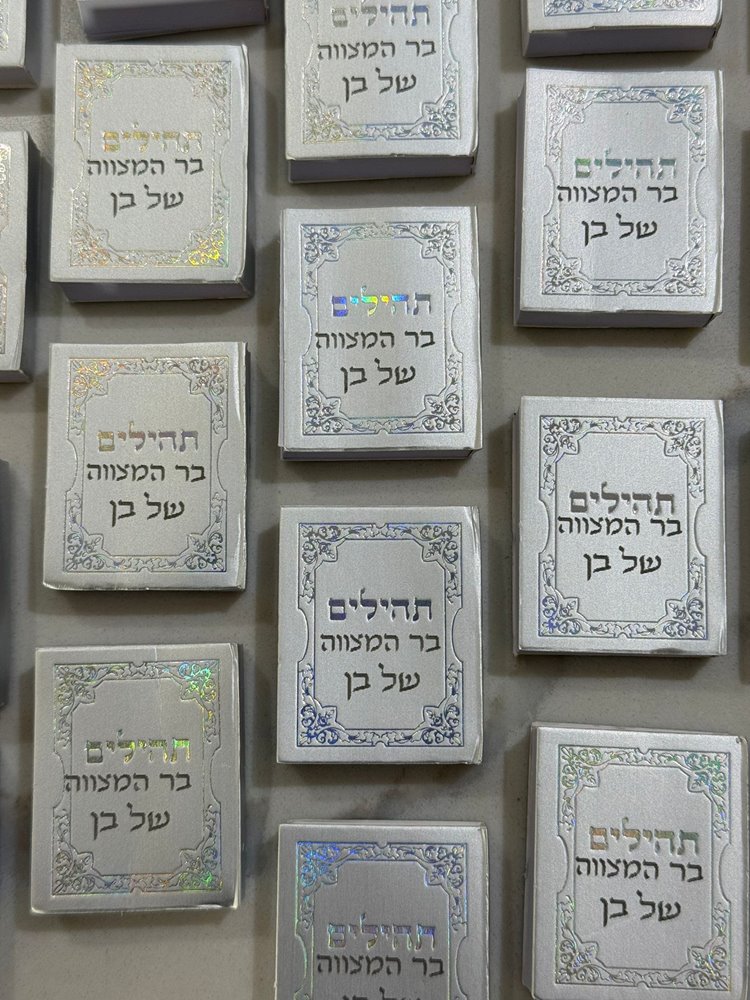 תהילים
בר המצווה
של בן
תהילים
בר המצווה
של בן
תהילים
בר המצווה
של בן
תהילים
בר המצווה
של בן
תהילים
בר המצווה
של בן
תהילים
בר המצווה
של בן
תהילים
בר המצווה
של בן
תהילים
בר המצווה
של בן
תהילים
בר המצווה
של בן
תהילים
בר המצווה
של בן